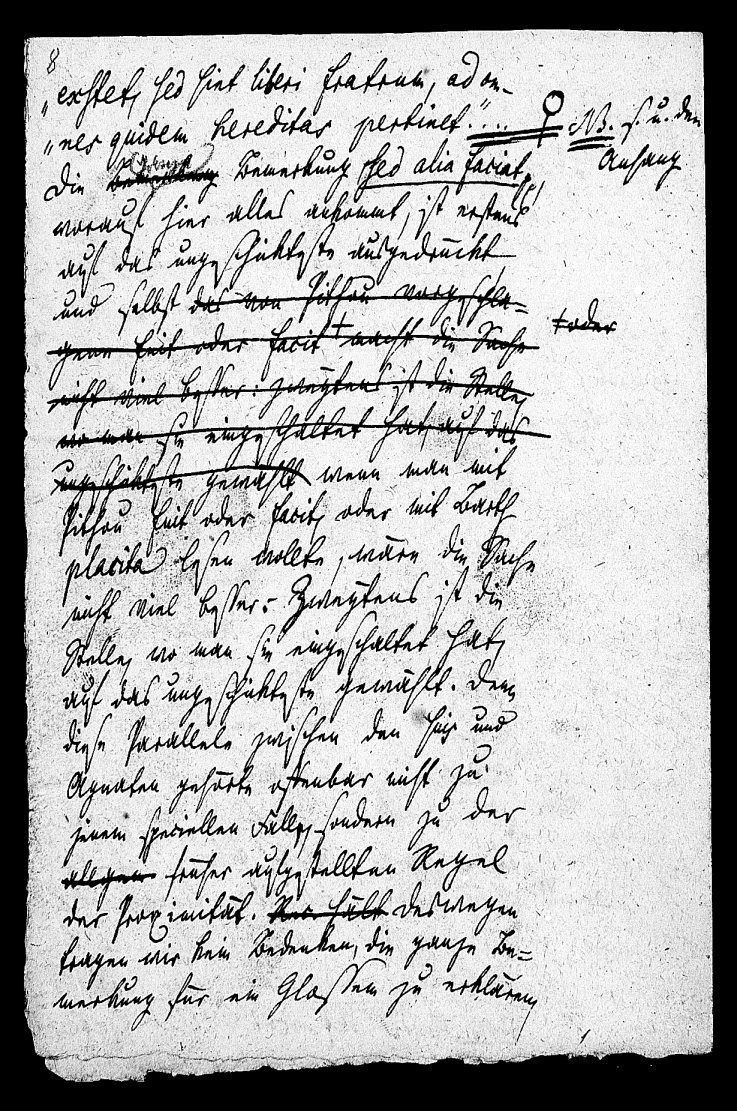 8
„exstet, sed sint liberi fratrum, ad om-
„nes quidem hereditas pertinet.“.... ♀ NB. s. u. den
Anhang
Die Bemerkung sed alia faciat,
worauf hier alles ankommt, ist erstens
auf das ungeschickteste ausgedrückt
und selbst das von Pithou vorgeschla=
gene fuit oder facit + macht die Sache + oder
nicht viel besser: zweytens ist die Stelle,
wo man sie eingeschaltet hat, auf das
ungeschickteste gewählt, wenn man mit
Pithou fuit oder facit, oder mit Barth
placita lesen wollte, wäre die Sache
nicht viel besser: Zweytens ist die
Stelle, wo man sie eingeschaltet hat,
auf das ungeschickteste gewählt. Denn
diese Parallele zwischen den suis und
Agnaten gehörte offenbar nicht zu
jenem speciellen Falle, sondern zu der
allgem früher aufgestellten Regel
der Proximität. Deswegen
tragen wir kein Bedenken, die ganze Be=
merkung für ein Glossem zu erklären,